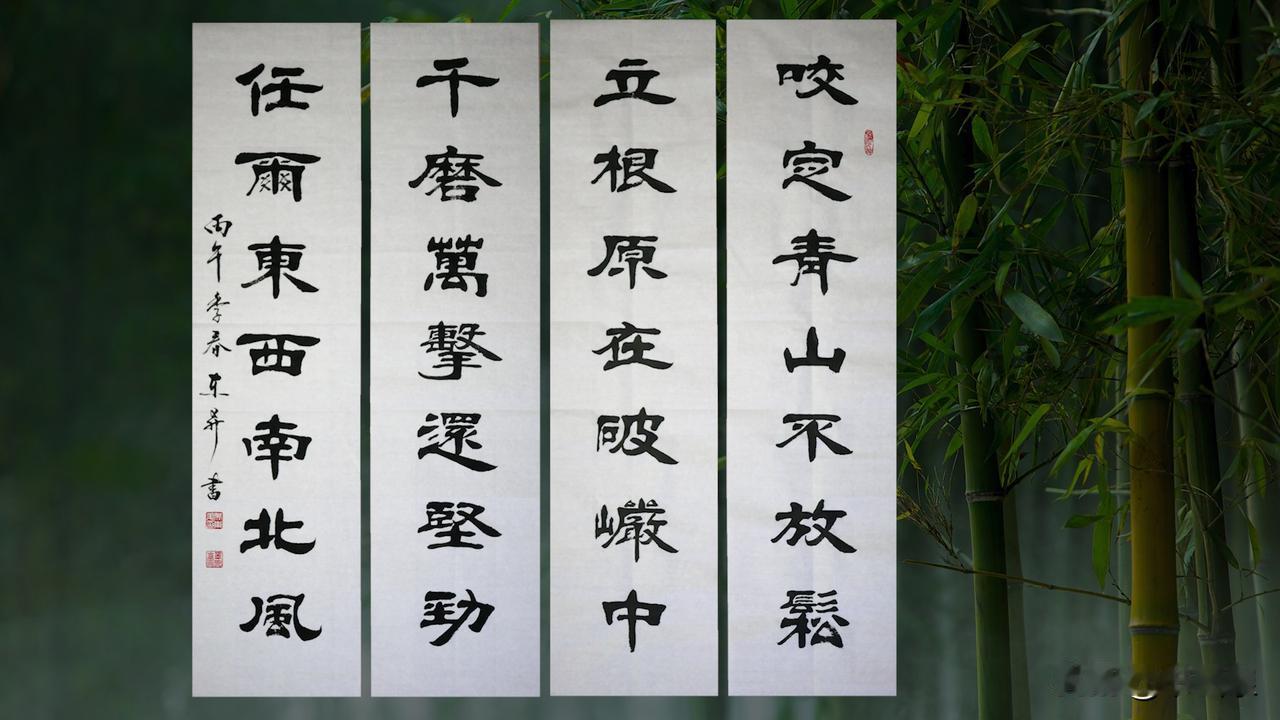 咬定青山不放鬆
立根原在破巗中
千磨萬擊還堅勁
任爾東西南北風
丙午季春东書